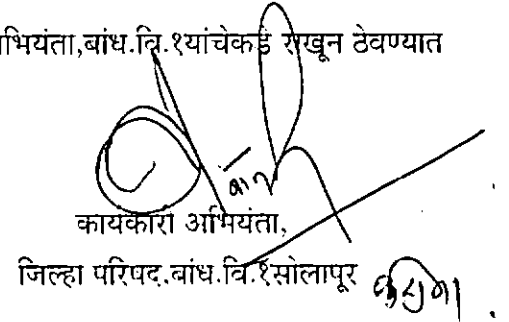 भियंता,बांध.वि.१यांचेकडे राखून ठेवण्यात
कार्यकारी अभियंता,
जिल्हा परिषद.बांध.वि.१सोलापूर